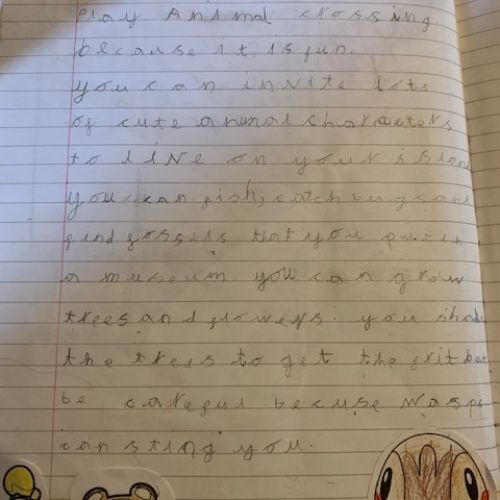 play Animal crossing
because it is fun.
you can invite lots
of cute animal sharacters
to live on your island
you can fish, catch bugs and
find fossils that you put in
a museum. you can grow
trees and flowers. you shake
the trees to get the frit but
be careful becuse wasps
can sting you.